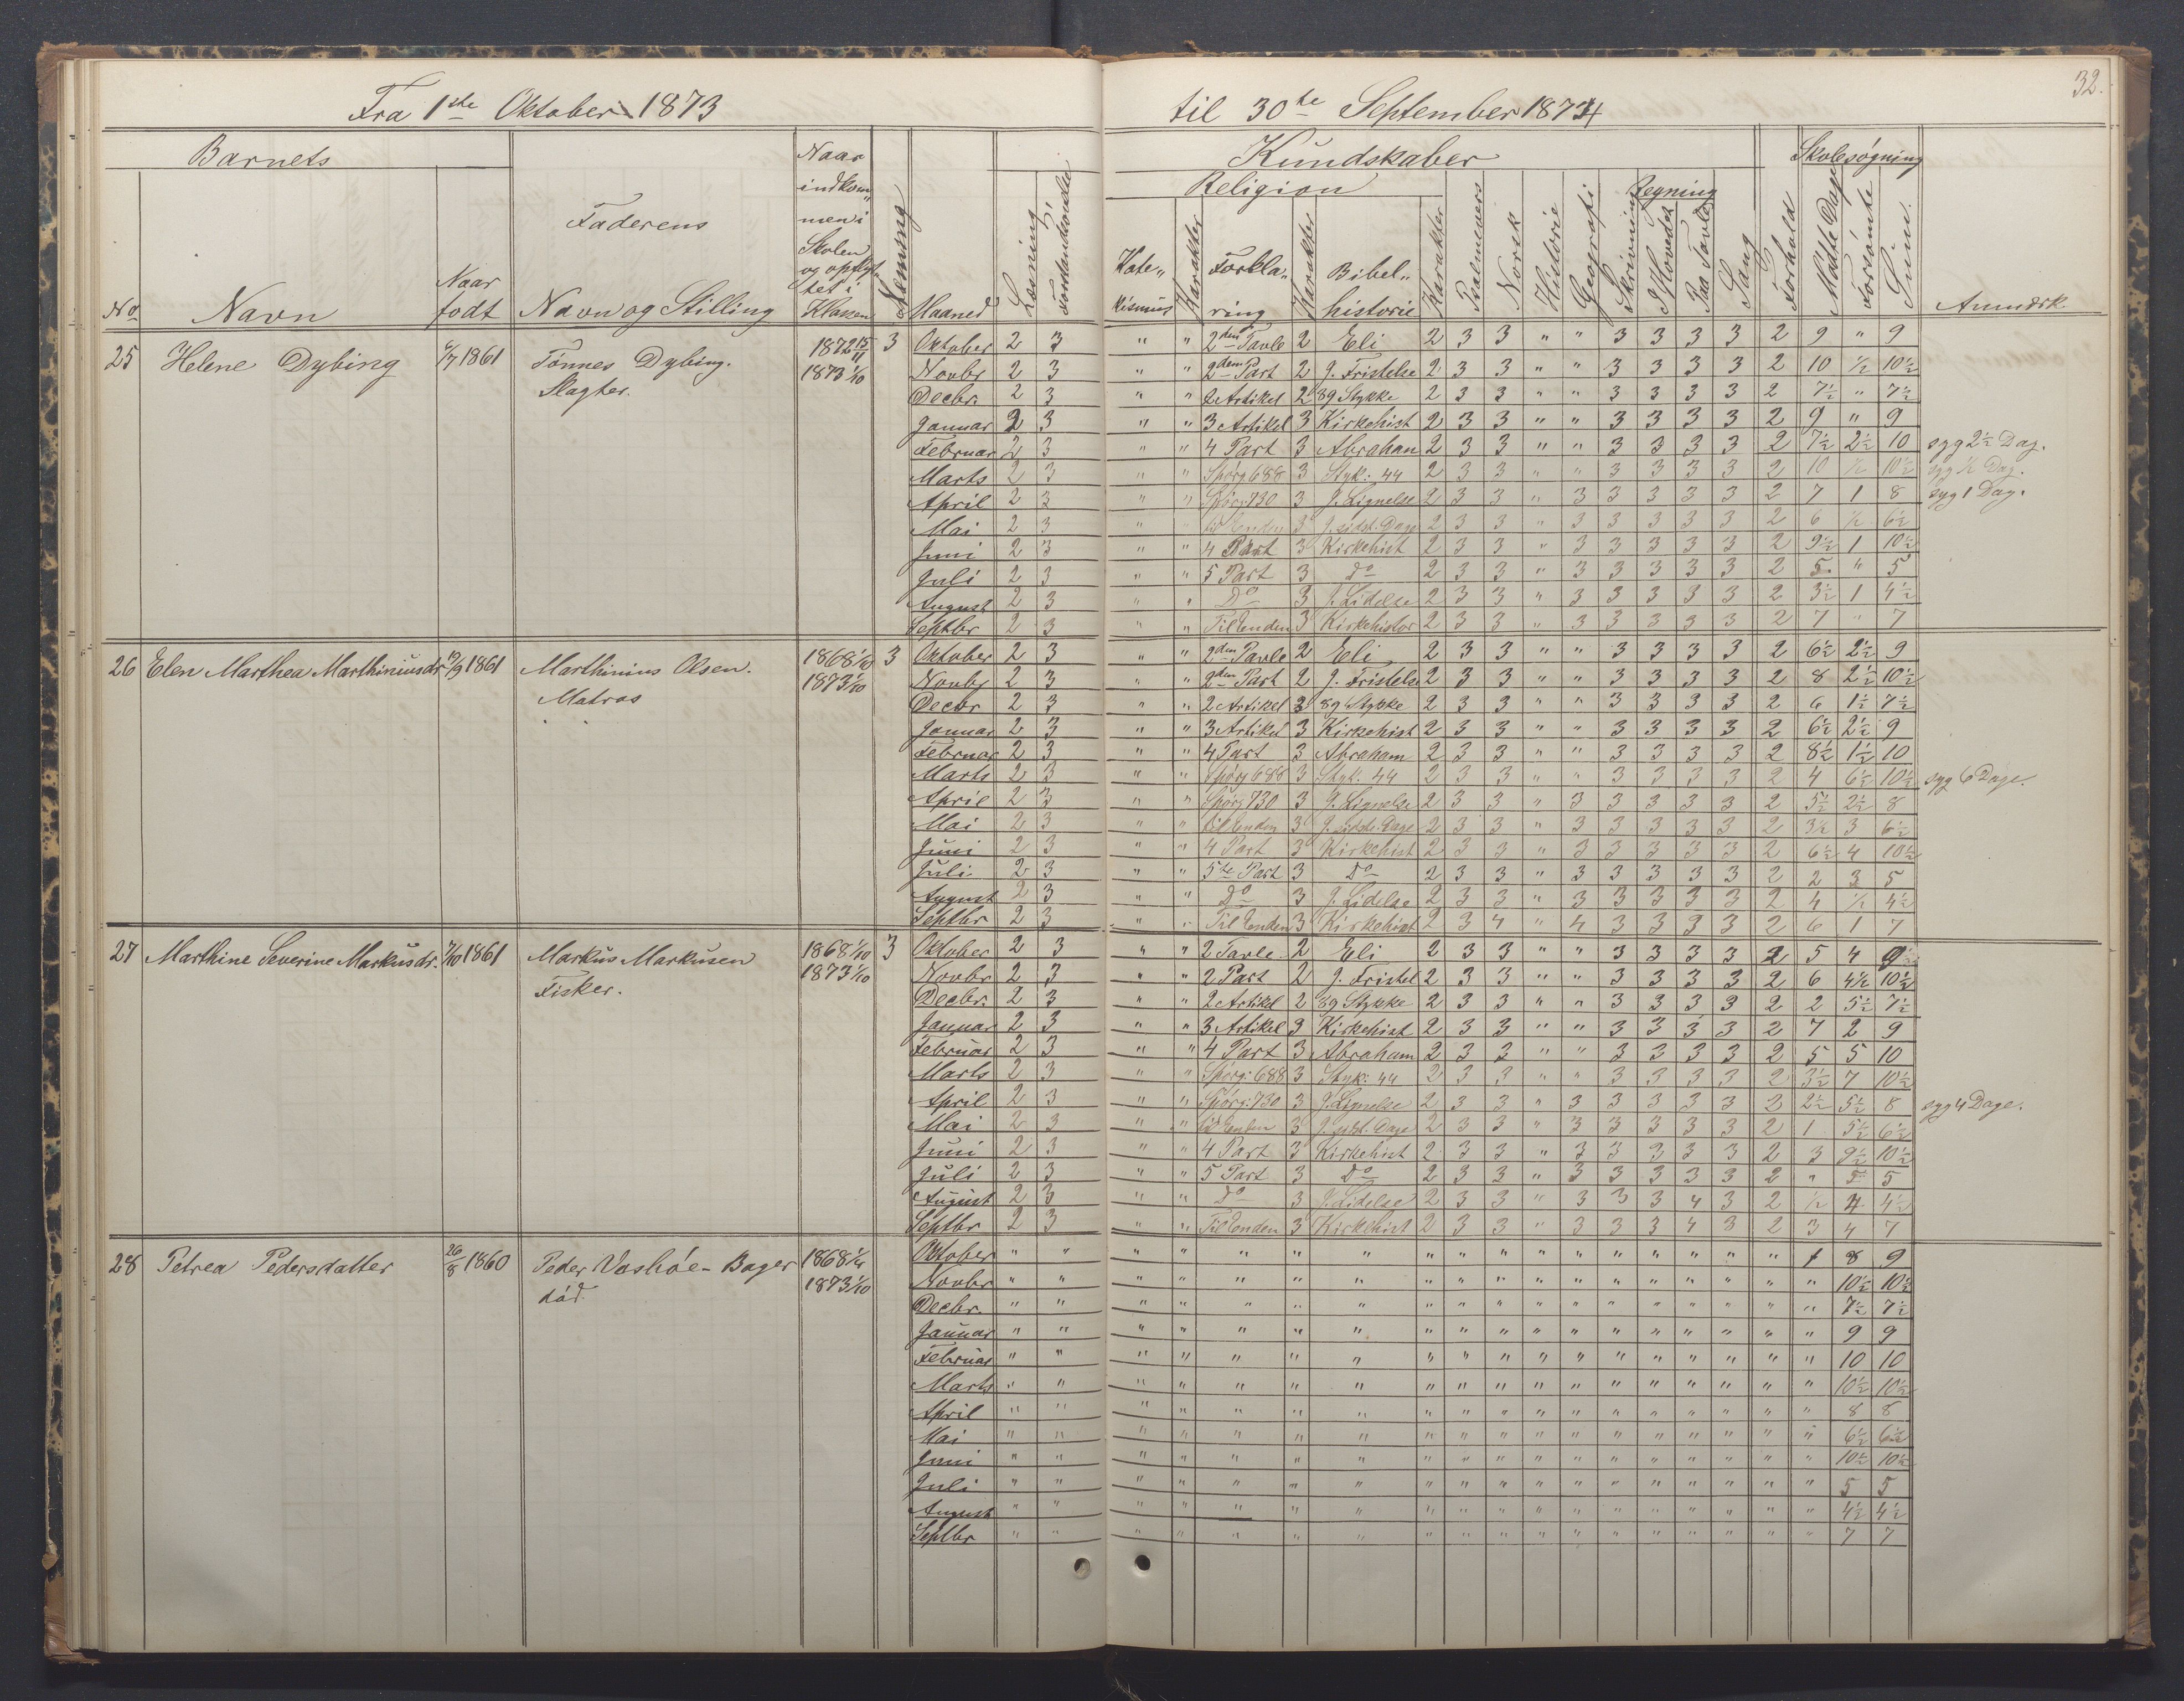 32.
Fra 1ste Oktober 1873 til 30te September 1874
Barnets Faderens Naar indkom„ men i Skolen og opflyt„ tet i Klassen Kundskaber Skolesøgning
Religion Regning
No Navn Naar født Navn og Stilling Maaned Læsning Forstandsøvelse Kate„ kismus Karakter Forkla„ ring Karakter Bibel„ historie Karakter Psalmevers Norsk Historie Geografi Skrivning I Hovedet Paa Tavle Sang Forhold Mødte Dage Forsømte Sum. Anmærk.
25 Helene Dybing 1861 Tønnes Dybing. 1872 15/11 3 Oktober 2 3 " " 2den Tavle 2 Eli 2 3 3 " " 3 3 3 3 2 9 " 9
Slagter. 1873 1/10 Novbr 2 3 " " 2den Part 2 J. Fristelse 2 3 3 " " 3 3 3 3 2 10 ½ 10½
Decbr. 2 3 " " 2 Artikel 2 89 Stykke 2 3 3 " " 3 3 3 3 2 7½ " 7½
Januar 2 3 " " 3 Artikel 3 Kirkehist 2 3 3 " " 3 3 3 3 2 9 " 9
Februar 2 3 " " 4 Part 3 Abraham 2 3 3 " " 3 3 3 3 2 7½ 2½ 10 syg 2½ Dag.
Marts 2 3 " " Spørg 688 3 Styk: 44 2 3 3 " " 3 3 3 3 2 10 ½ 10½ syg ½ Dag.
April 2 3 " " Spørg: 730 3 J. Lignelse 2 3 3 " 3 3 3 3 3 2 7 1 8 syg 1 Dag.
Mai 2 3 " " til Enden 3 J. sidst. Dage 2 3 3 " 3 3 3 3 3 2 6 ½ 6½
Juni 2 3 " " 4 Part 3 Kirkehist 2 3 3 " 3 3 3 3 3 2 9½ 1 10½
Juli 2 3 " " 5 Part 3 Do 2 3 3 " 3 3 3 3 3 2 5 " 5
August 2 3 " " Do 3 J. Lidelse 2 3 3 " 3 3 3 3 3 2 3½ 1 4½
Septbr 2 3 " " Til Enden 3 Kirkehistor 2 3 3 " 3 3 3 3 3 2 7 " 7
26 Elen Marthea Marthiniusdr 19/9 1861 Marthinius Olsen. 1868 1/10 3 Oktober 2 3 " " 2den Tavle 2 Eli 2 3 3 " " 3 3 3 3 2 6½ 2½ 9
Matros 1873 1/10 Novbr 2 3 " " 2den Part 2 J. Fristelse 2 3 3 " " 3 3 3 3 2 8 2½ 10½
Decbr 2 3 " " 2 Artikel 3 89 Stykke 2 3 3 " " 3 3 3 3 2 6 1½ 7½
Januar 2 3 " " 3 Artikel 3 Kirkehist 2 3 3 " " 3 3 3 3 2 6½ 2½ 9
Februar 2 3 " " 4 Part 3 Abraham 2 3 3 " " 3 3 3 3 2 8½ 1½ 10
Marts 2 3 " " Spørg 688 3 Styk. 44 2 3 3 " " 3 3 3 3 2 4 6½ 10½ syg 6 Dage.
April 2 3 " " Spørg 730 3 J. Lignelse 2 3 3 " 3 3 3 3 3 2 5½ 2½ 8
Mai 2 3 " " til Enden 3 J. sidst. Dage 2 3 3 " 3 3 3 3 3 2 3½ 3 6½
Juni 2 3 " " 4 Part 3 Kirkehist 2 3 3 " 3 3 3 3 3 2 6½ 4 10½
Juli 2 3 " " 5te Part 3 Do 2 3 3 " 3 3 3 3 3 2 2 3 5
August 2 3 " " Do 3 J. Lidelse 2 3 3 " 3 3 3 3 3 2 4 ½ 4½
Septbr 2 3 " " Til Enden 3 Kirkehist 2 3 4 " 4 3 3 3 3 2 6 1 7
27 Marthine Severine Markusdr. 7/10 1861 Markus Markusen 1868 1/10 3 Oktober 2 3 " " 2 Tavle 2 Eli 2 3 3 " " 3 3 3 3 2 5 4 9
Fisker. 1873 1/10 Novbr 2 3 " " 2 Part 2 J. Fristel 2 3 3 " " 3 3 3 3 2 6 4½ 10½
Decbr. 2 3 " " 2 Artikel 2 89 Stykke 2 3 3 " " 3 3 3 3 2 2 5½ 7½
Januar 2 3 " " 3 Artikel 3 Kirkehist 2 3 3 " " 3 3 3 3 2 7 2 9
Februar 2 3 " " 4 Part 3 Abraham 2 3 3 " " 3 3 3 3 2 5 5 10
Marts 2 3 " " Spørg: 688 3 Styk: 44 2 3 3 " " 3 3 3 3 2 3½ 7 10½
April 2 3 " " Spørg: 730 3 J. Lignelse 2 3 3 " 3 3 3 3 3 2 2½ 5½ 8 syg 4 Dage.
Mai 2 3 " " til Enden 3 J. sidst. Dage 2 3 3 " 3 3 3 3 3 2 1 5½ 6½
Juni 2 3 " " 4 Part 3 Kirkehist 2 3 3 " 3 3 3 3 3 2 3 9½ 10½
Juli 2 3 " " 5 Part 3 Do 2 3 3 " 3 3 3 3 3 2 " 5 5
August 2 3 " " Do 3 J. Lidelse 2 3 3 " 3 3 3 4 3 2 ½ 4 4½
Septbr 2 3 " " Til Enden 3 Kirkehist 2 3 3 " 3 3 3 4 3 2 3 4 7
28 Petrea Pedersdatter 26/8 1860 Peder Vashøe - Bager 1868 Oktober " " " " " " " " " " " " " " " " " " 1 8 9
død. 1873 1/10 Novbr " " " " " " " " " " " " " " " " " " " 10½ 10½
Decbr. " " " " " " " " " " " " " " " " " " " 7½ 7½
Januar " " " " " " " " " " " " " " " " " " " 9 9
Februar " " " " " " " " " " " " " " " " " " " 10 10
Marts " " " " " " " " " " " " " " " " " " " 10½ 10½
April " " " " " " " " " " " " " " " " " " " 8 8
Mai " " " " " " " " " " " " " " " " " " " 6½ 6½
Juni " " " " " " " " " " " " " " " " " " " 10½ 10½
Juli " " " " " " " " " " " " " " " " " " " 5 5
August " " " " " " " " " " " " " " " " " " " 4½ 4½
Septbr " " " " " " " " " " " " " " " " " " " 7 7